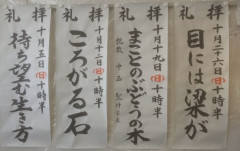 礼拝
十月二十六日(日)十時半
目には梁が
礼拝
十月十九日(日)十時半
まことのぶどうの木
礼拝
十月十二日(日)十時半
ころがる石
礼拝
十月五日(日)十時半
待ち望む生き方